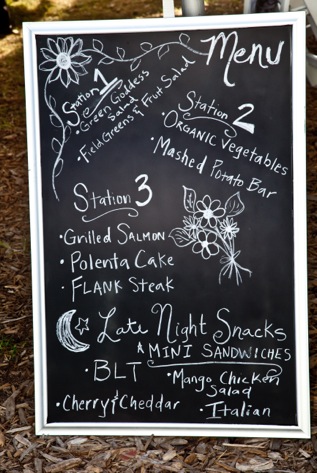 Menu
Station 1
• Green Goddess
Salad
• Field Greens & Fruit Salad
Station 2
• ORGANIC Vegetables
• Mashed Potato Bar
Station 3
• Grilled SALMON
• Polenta Cake
• FLANK Steak
Late Night Snacks
MINI SANDWICHES
• BLT
• Mango Chicken
Salad
• Cherry & Cheddar
• Italian